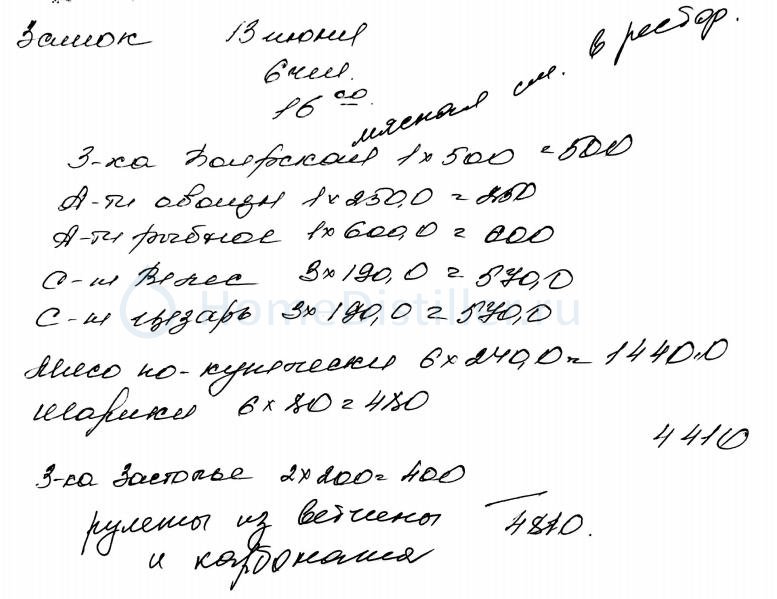 Замок 13 июня
6 чел.
16 00
мясная см. в рестор.
З-ка Боярская 1 x 500 = 500
А-ти овощн 1 x 250,0 = 250
А-ти рыбное 1 x 600,0 = 600
С-т Велес 3 x 190,0 = 570,0
С-т цезарь 3 x 190,0 = 570,0
HomeDistiller.ru
Мясо по-купечески 6 x 240,0 = 1440,0
шарики 6 x 80 = 480
4410
З-ка Застолье 2 x 200 = 400
рулеты из ветчены 4810.
и карбоната